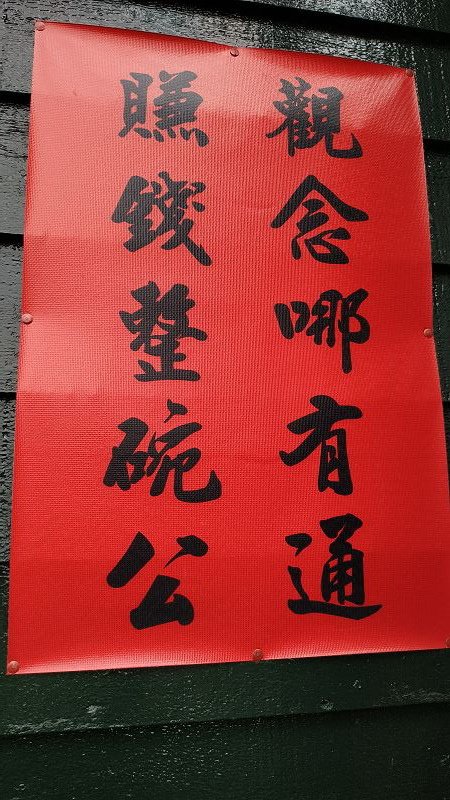 觀念哪有通
賺錢整碗公